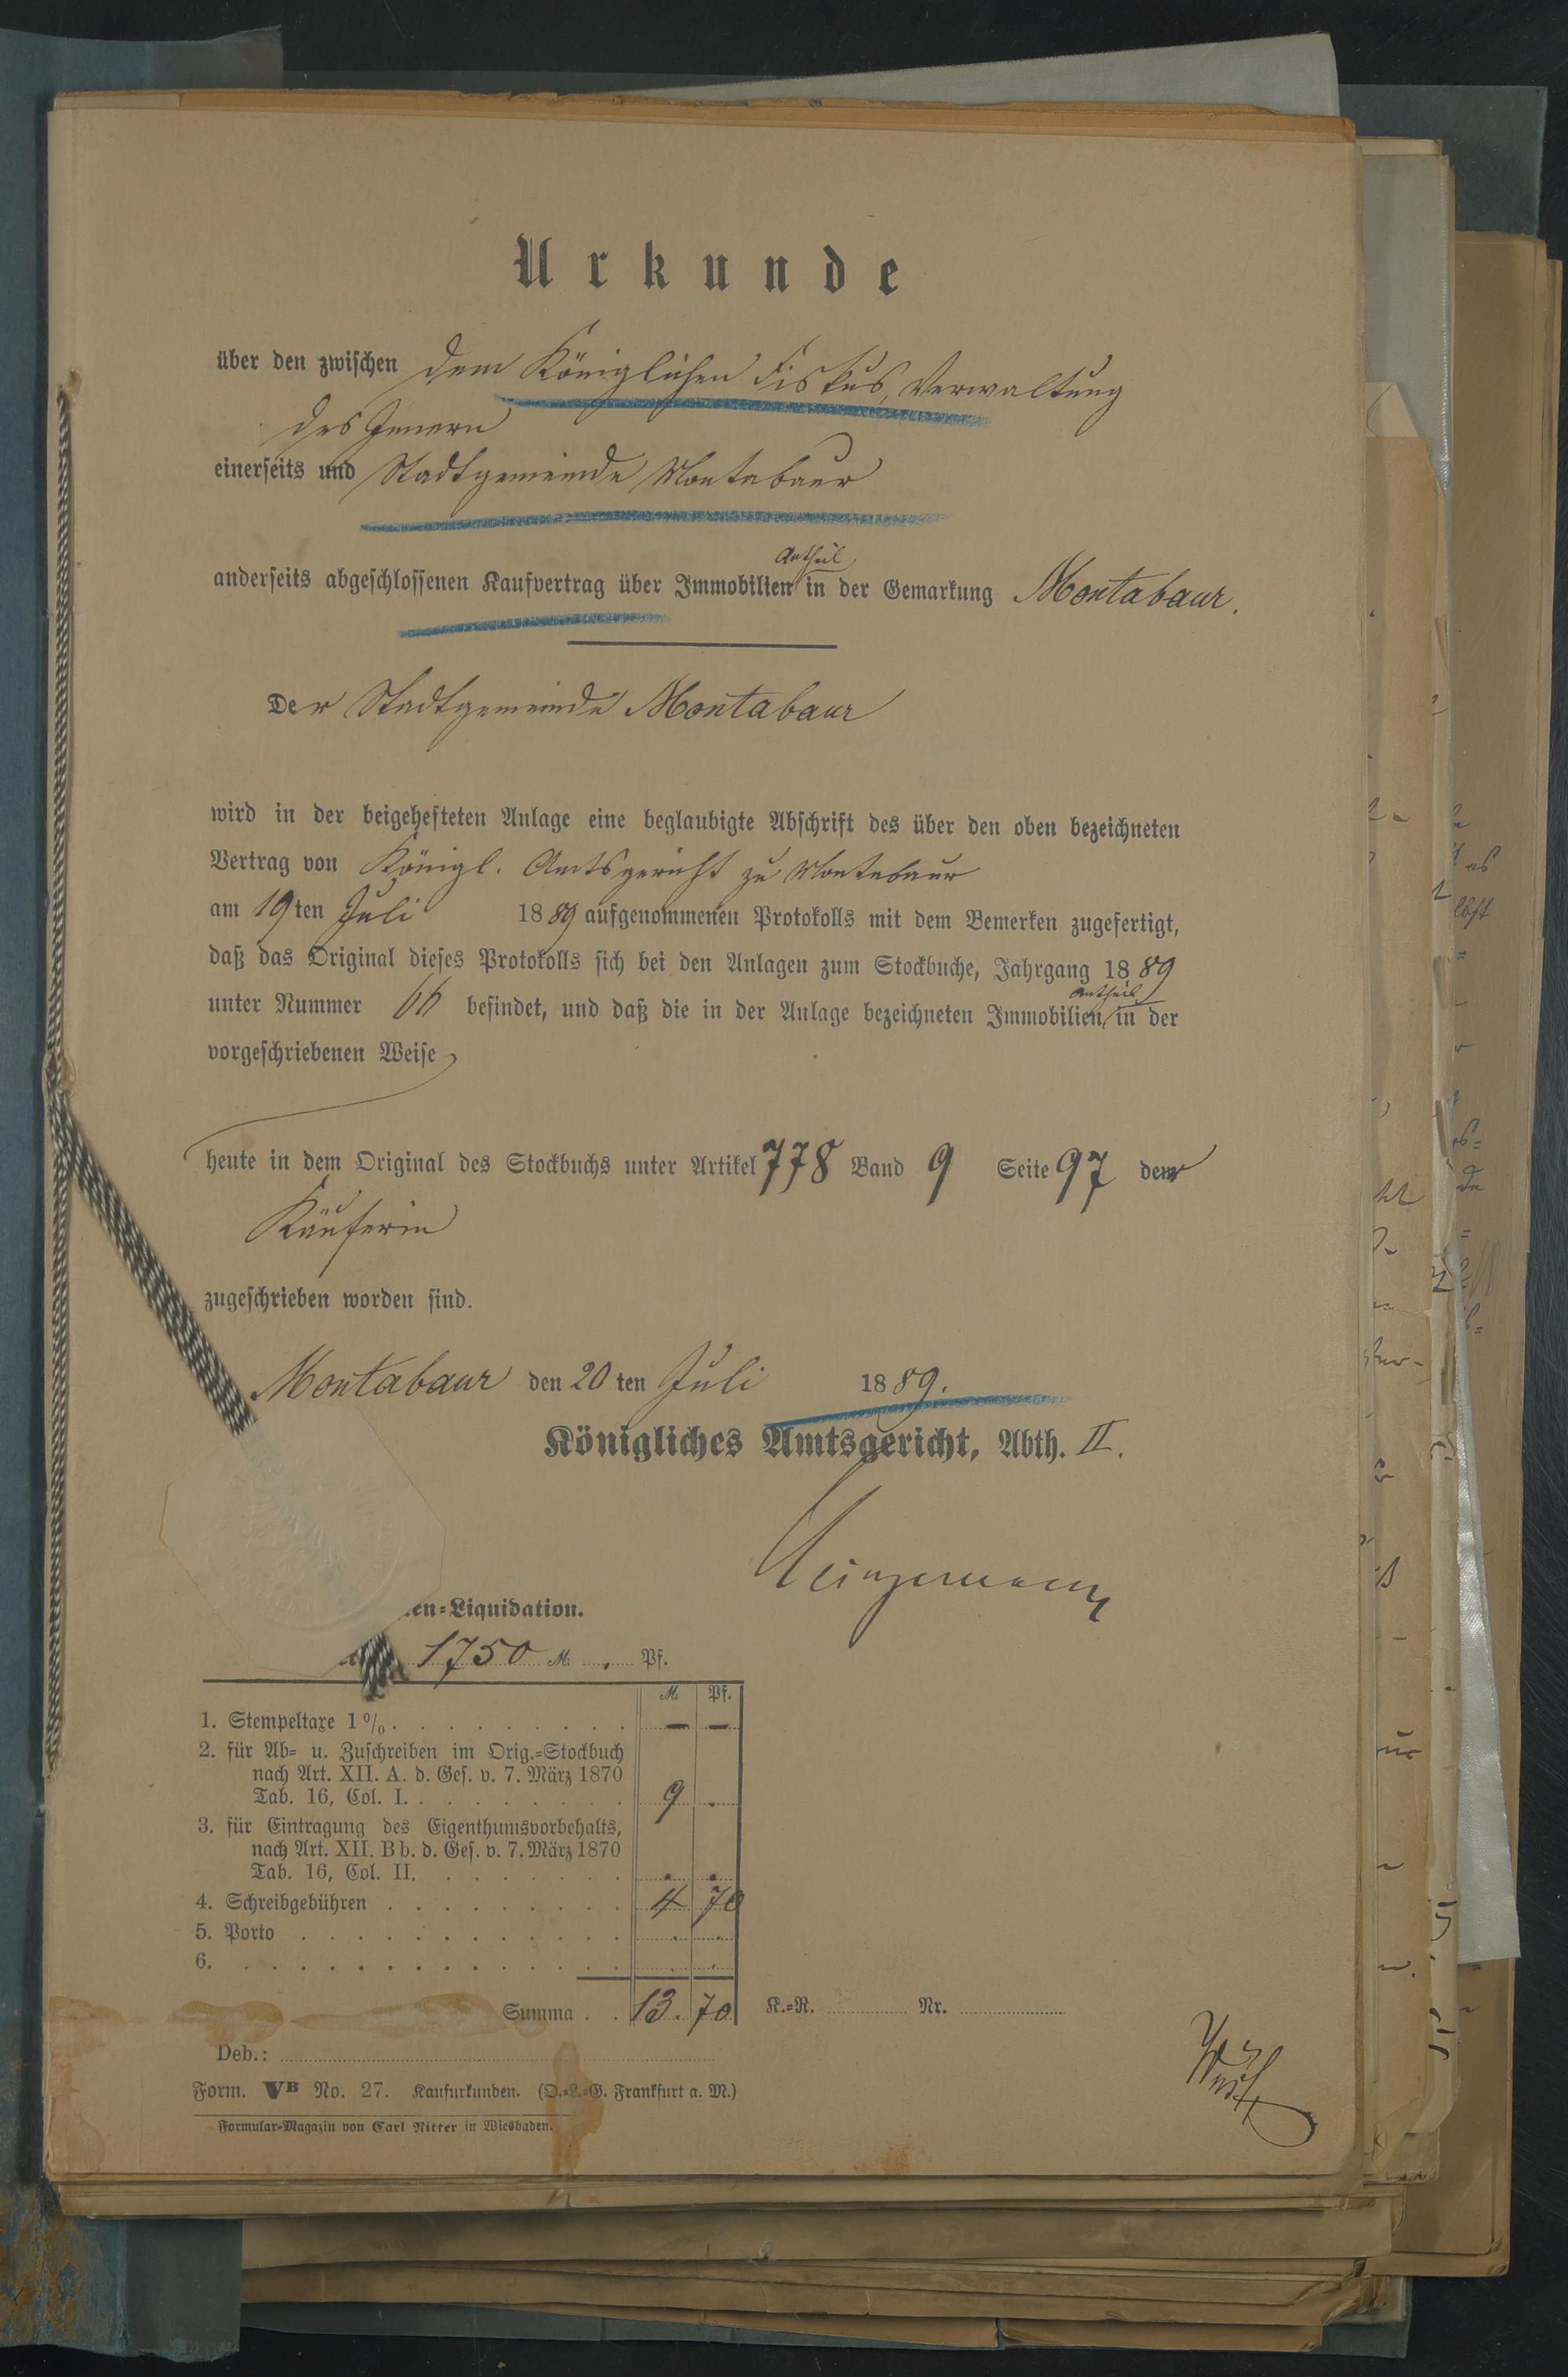 Urkunde
über den zwischen dem Königlichen Fiskus, Verwaltung
des Innern
einerseits und Stadtgemeinde Montabaur
Antheil
anderseits abgeschlossenen Kaufvertrag über Immobilien in der Gemarkung Montabaur.
Der Stadtgemeinde Montabaur
wird in der beigehefteten Anlage eine beglaubigte Abschrift des über den oben bezeichneten
Vertrag von Königl. Amtsgericht zu Montabaur
am 19ten Juli 1889 aufgenommenen Protokolls mit dem Bemerken zugefertigt,
daß das Original dieses Protokolls sich bei den Anlagen zum Stockbuche, Jahrgang 1889
Antheil
unter Nummer 66 befindet, und daß die in der Anlage bezeichneten Immobilien in der
vorgeschriebenen Weise
heute in dem Original des Stockbuchs unter Artikel 778 Band 9 Seite 97 der
Käuferin
zugeschrieben worden sind.
Montabaur den 20ten Juli 1889.
Königliches Amtsgericht, Abth. II.
en-Liquidation.
1750 M. . Pf.
M. Pf.
1. Stempeltaxe 1% . . . . . . . . . — —
2. für Ab- u. Zuschreiben im Orig.-Stockbuch
nach Art. XII. A. d. Ges. v. 7. März 1870
Tab. 16, Col. I. . . . . . . . . 9 .
3. für Eintragung des Eigenthumsvorbehalts,
nach Art. XII. B b. d. Ges. v. 7. März 1870
Tab. 16, Col. II. . . . . . . . . .
4. Schreibgebühren . . . . . . . . . 4 70
5. Porto . . . . . . . . . . . . . .
6. . . . . . . . . . . . . . . .
Summa . . 13. 70 K.-R. Nr.
Deb.:
Form. VB No. 27. Kaufurkunden. (O.-L.-G. Frankfurt a. M.)
Formular-Magazin von Carl Ritter in Wiesbaden.